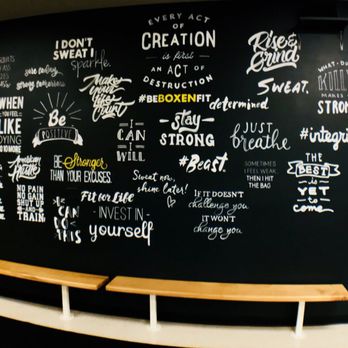 I DON'T
SWEAT I
sparkle.
EVERY ACT OF
CREATION
is first
AN ACT OF
DESTRUCTION
#BEBOXENFIT
Rise &
Grind
SWEAT.
determined
sore today
strong tomorrow
Make
your
life
Count
WHEN
YOU FEEL
LIKE
Be
POSITIVE
I CAN
&
I WILL
stay
STRONG
JUST
breathe
MAKES
STRONG
#integri
Be Stronger
THAN YOUR EXCUSES.
#Beast.
SOMETIMES
I FEEL WEAK
THEN I HIT
THE BAG
THE
BEST
is
YET
to
come
Sweat now,
shine later!
NO PAIN
NO GAIN
SHUT UP
&
TRAIN
Fit for Life
INVEST IN
yourself
IF IT DOESN'T
challenge you
IT WON'T
change you